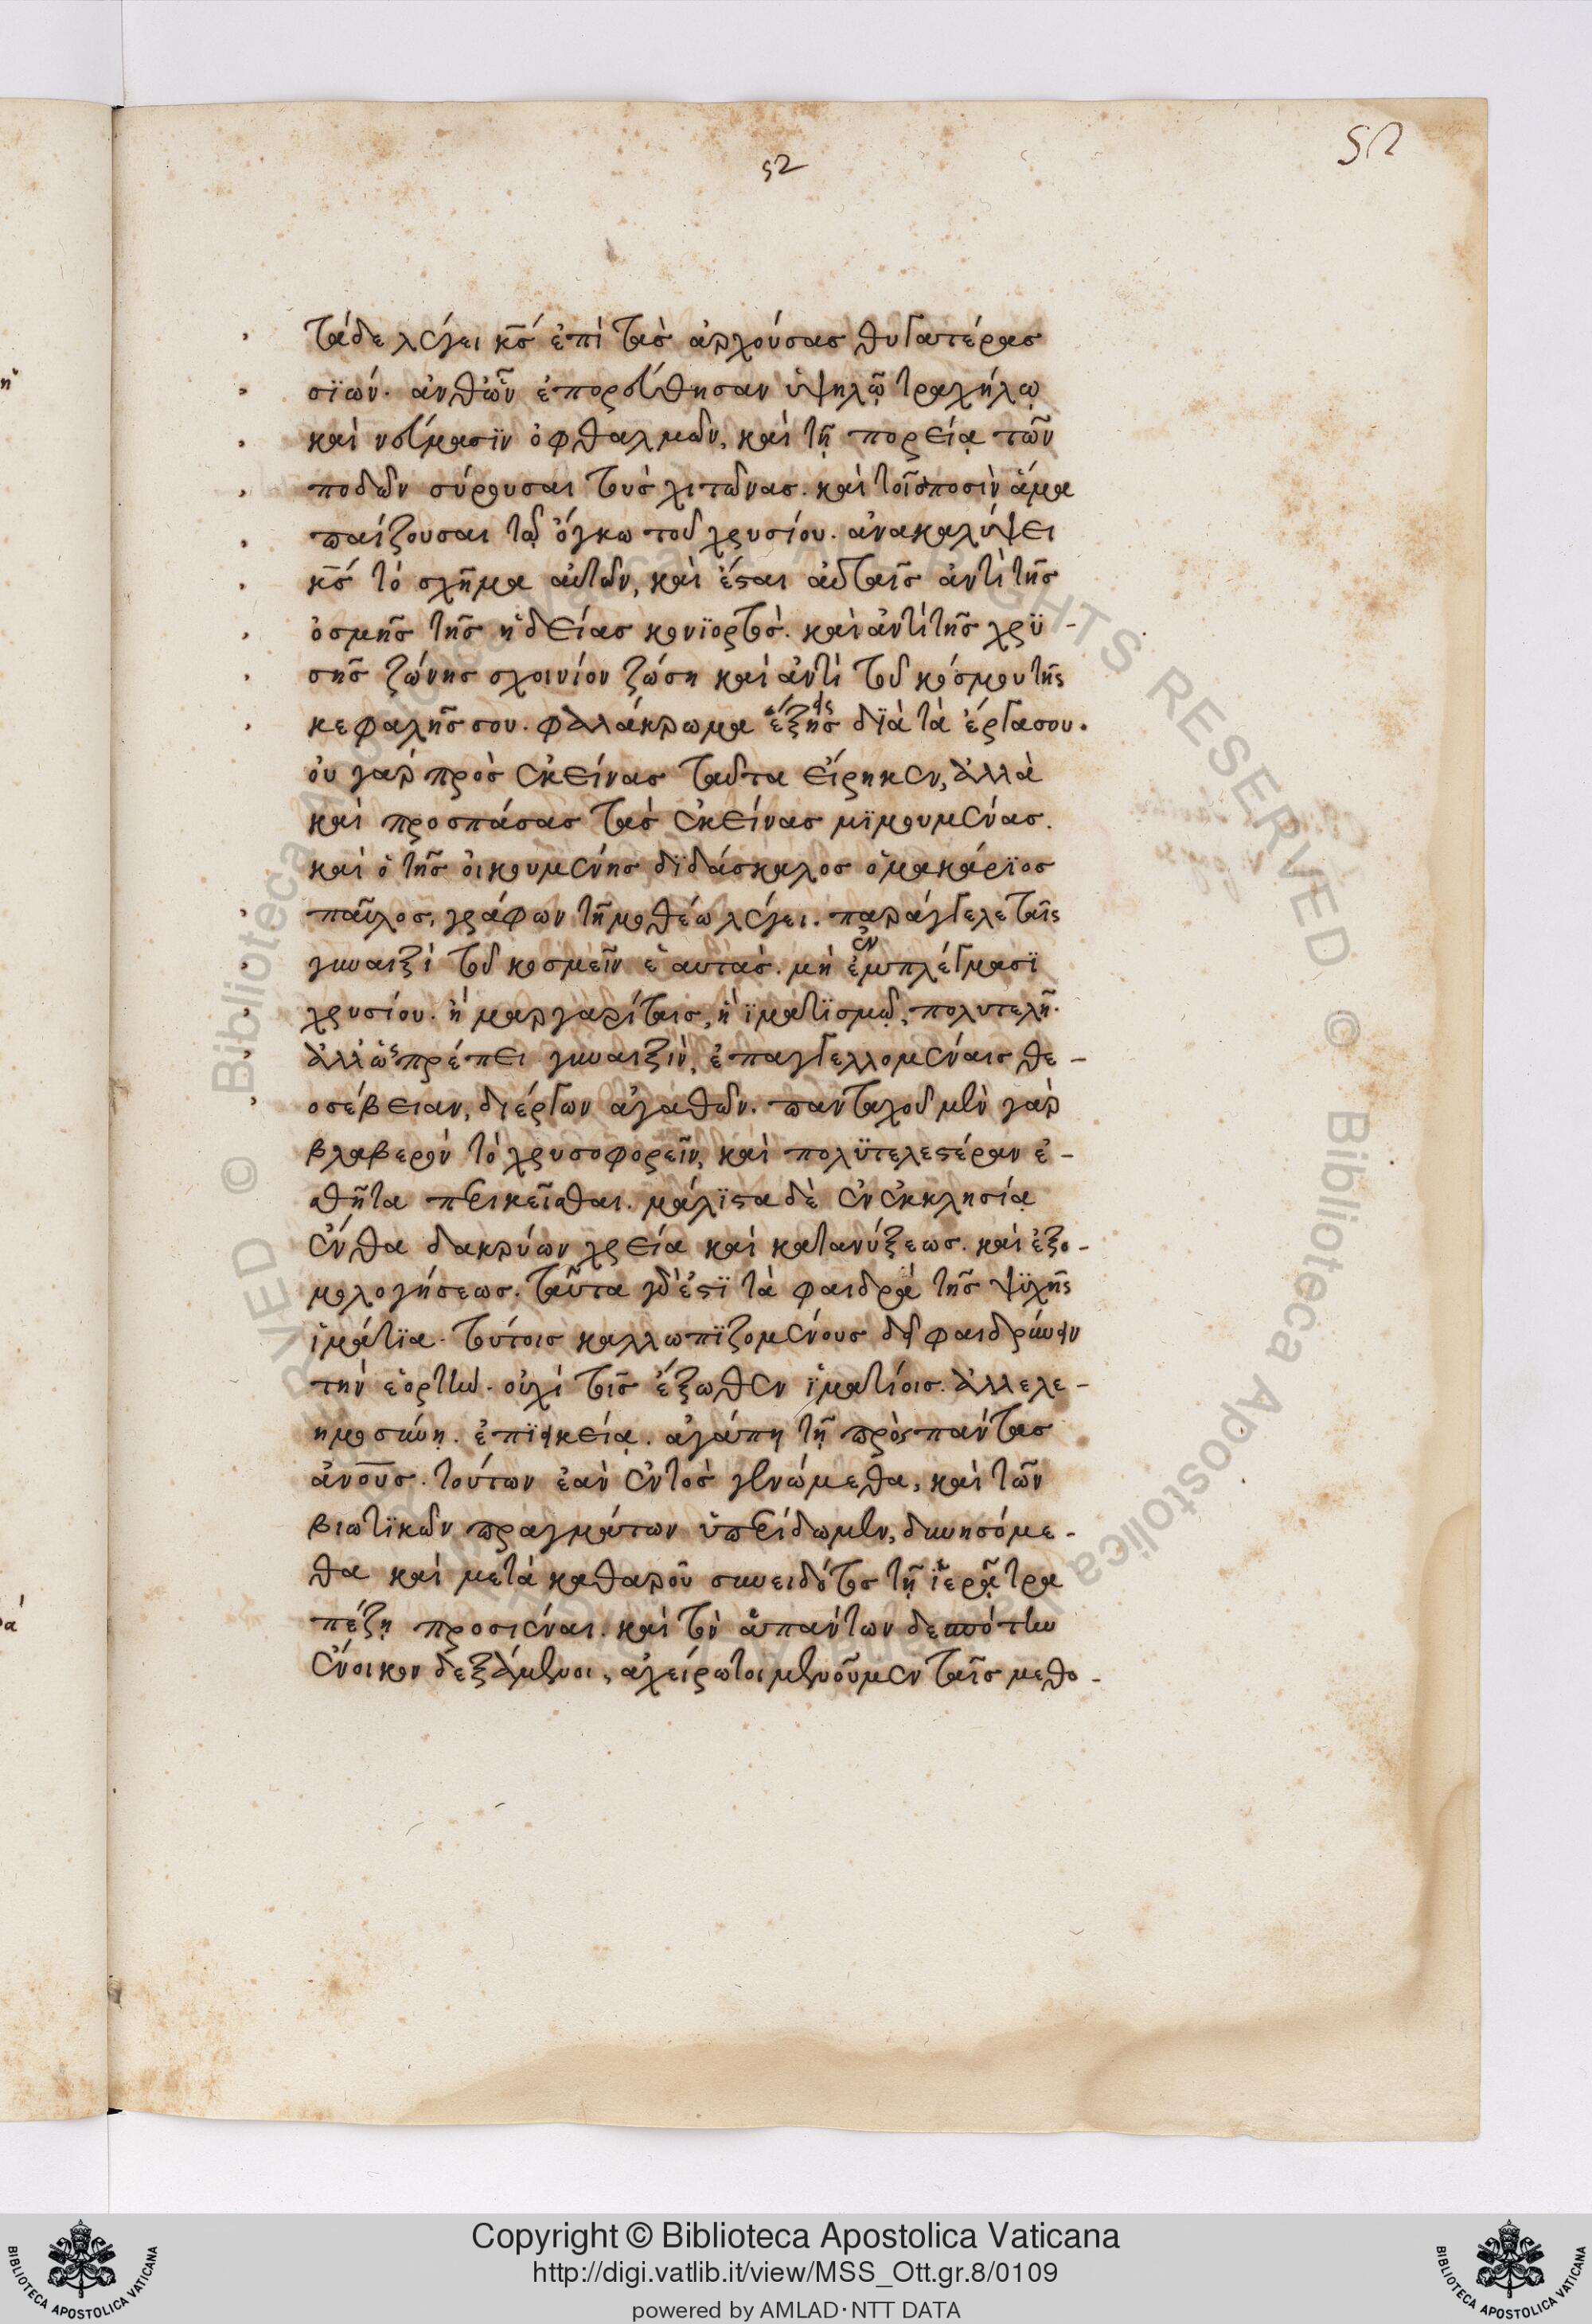 52
52
τάδε λέγει κ̅ς̅ ἐπὶ τὰς ἀρχούσας θυγατέρας
σϊών. ἀνθὧν ἐπορεύθησαν ὑψηλῷ τραχήλῳ
καὶ νεύμασϊν ὀφθαλμῶν, καὶ τῇ πορείᾳ τῶν
ποδῶν σύρουσαι τοὺς χιτῶνας. καὶ τοῖς ποσὶν ἅμα
παίζουσαι τῷ ὄγκω τοῦ χρυσίου. ἀνακαλύψει
κ̅ς̅ τὸ σχῆμα αὐτῶν, καὶ ἔσται αὐταῖς ἀντὶ τῆς
ὀσμῆς τῆς ἡδείας κονϊορτὸς. καὶ ἀντὶ τῆς χρϋ-
σῆς ζώνης σχοινίον ζώση καὶ ἀντὶ τοῦ κόσμου τῆς
κεφαλῆς σου. φαλάκρωμα ἕξῃς εις δϊὰ τὰ ἔργα σου.
οὐ γὰρ πρὸς ἐκείνας ταῦτα εἴρηκεν, ἀλλὰ
καὶ πρὸς πάσας τὰς ἐκείνας μϊμουμένας.
καὶ ὁ τῆς οἰκουμένης δϊδάσκαλος ὁ μακάρϊος
παῦλος, γράφων τῆμοθέω λέγει. παράγγελε ταῖς
γυναιξὶ τοῦ κοσμεῖν ἑαυτὰς. μὴ ἐμπλέγμασϊ
ἐν
χρυσίου. ἢ μαργαρίταις, ἢ ϊματϊσμῷ, πολυτελῆ.
ἀλλ' ὡς πρέπει γυναιξὶν, ἐπαγγελλομέναις θε-
οσέβειαν, δι ἔργων ἀγαθῶν. πανταχοῦ μὲν γὰρ
βλαβερὸν τὸ χρυσοφορεῖν, καὶ πολϋτελεστέραν ἐ-
σθῆτα περικεῖσθαι. μάλϊστα δὲ ἐν ἐκκλησίᾳ
ἔνθα δακρύων χρεία καὶ κατανύξεως. καὶ ἐξο-
μολογήσεως. ταῦτα γάρ ἐστϊ τὰ φαιδρὰ τῆς ψϋχῆς
ἱμάτϊα. τούτοις καλλωπϊζομένους δεῖ φαιδρύνειν
τὴν ἑορτὴν. οὐχὶ τοῖς ἔξωθεν ϊματίοις. ἀλλ ἐλε-
ημοσύνῃ. ἐπϊεικείᾳ. ἀγάπη τῇ πρὸς πάντας
ἀν̅ο̅υ̅ς. τούτων ἐὰν ἐντὸς γενώμεθα, καὶ τῶν
βιωτϊκῶν πραγμάτων ὑπερίδωμεν, δυνησόμε-
θα καὶ μετὰ καθαροῦ συνειδότος τῇ ἱερᾷ τρα
πέζῃ προσιέναι. καὶ τὸν ἁπάντων δεσπότην
ἔνοικον δεξάμενοι, ἀχείρωτοι μενοῦμεν ταῖς μεθο-
Copyright © Biblioteca Apostolica Vaticana
http://digi.vatlib.it/view/MSS_Ott.gr.8/0109
powered by AMLAD·NTT DATA